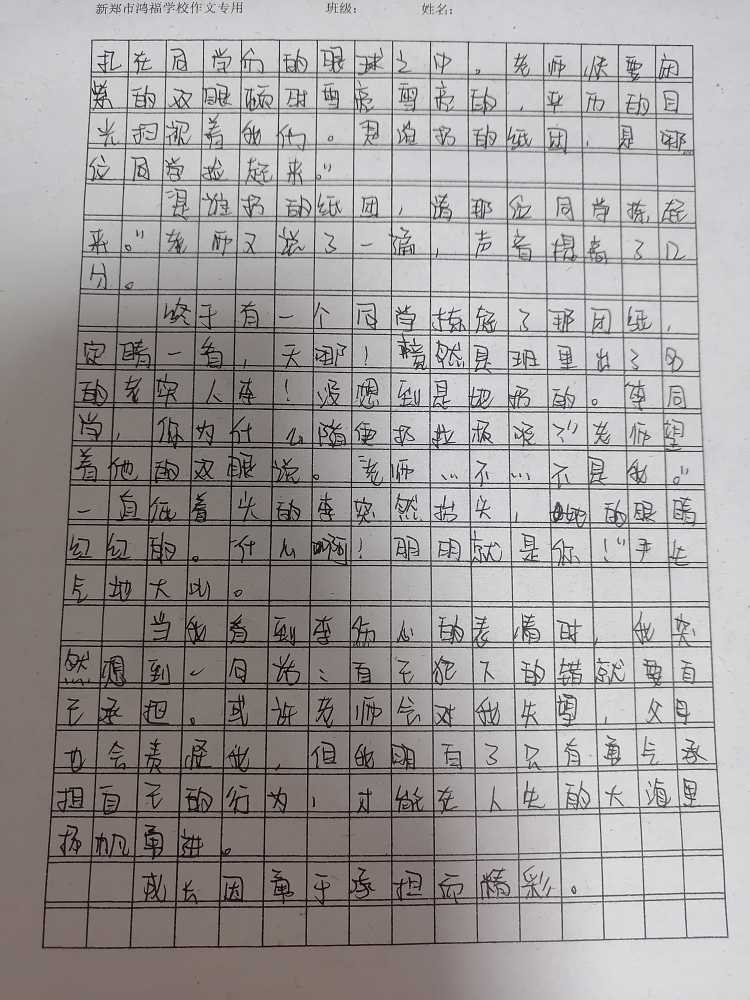 新郑市鸿福学校作文专用 班级： 姓名：
扎在同学们的眼球之中。老师快要闭
紧的双眼顿时雪亮雪亮的，平历的目
光扫视着我们。是谁扔的纸团，是哪
位同学捡起来。”
是谁扔的纸团，请那位同学拣起
来。”老师又说了一遍，声音提高了
分。
终于有一个同学拣起了那团纸，
定睛一看，天哪！竟然是班里出了名
的老实人李！没想到是她扔的。李同
学，你为什么随便扔垃圾呢？”老师望
着他的双眼说。老师…不…不是我。”
一直低着头的李突然抬头，她的眼睛
红红的。什么啊！明明就是你！”手
气地大叫。
当我看到李伤心的表情时，我突
然想到一句话：自己犯下的错就要自
己承担。或许老师会对我失望，父母
也会责怪我，但我明白了只有勇气承
担自己的行为，才能在人生的大海里
扬帆勇进。
成长因勇于承担而精彩。